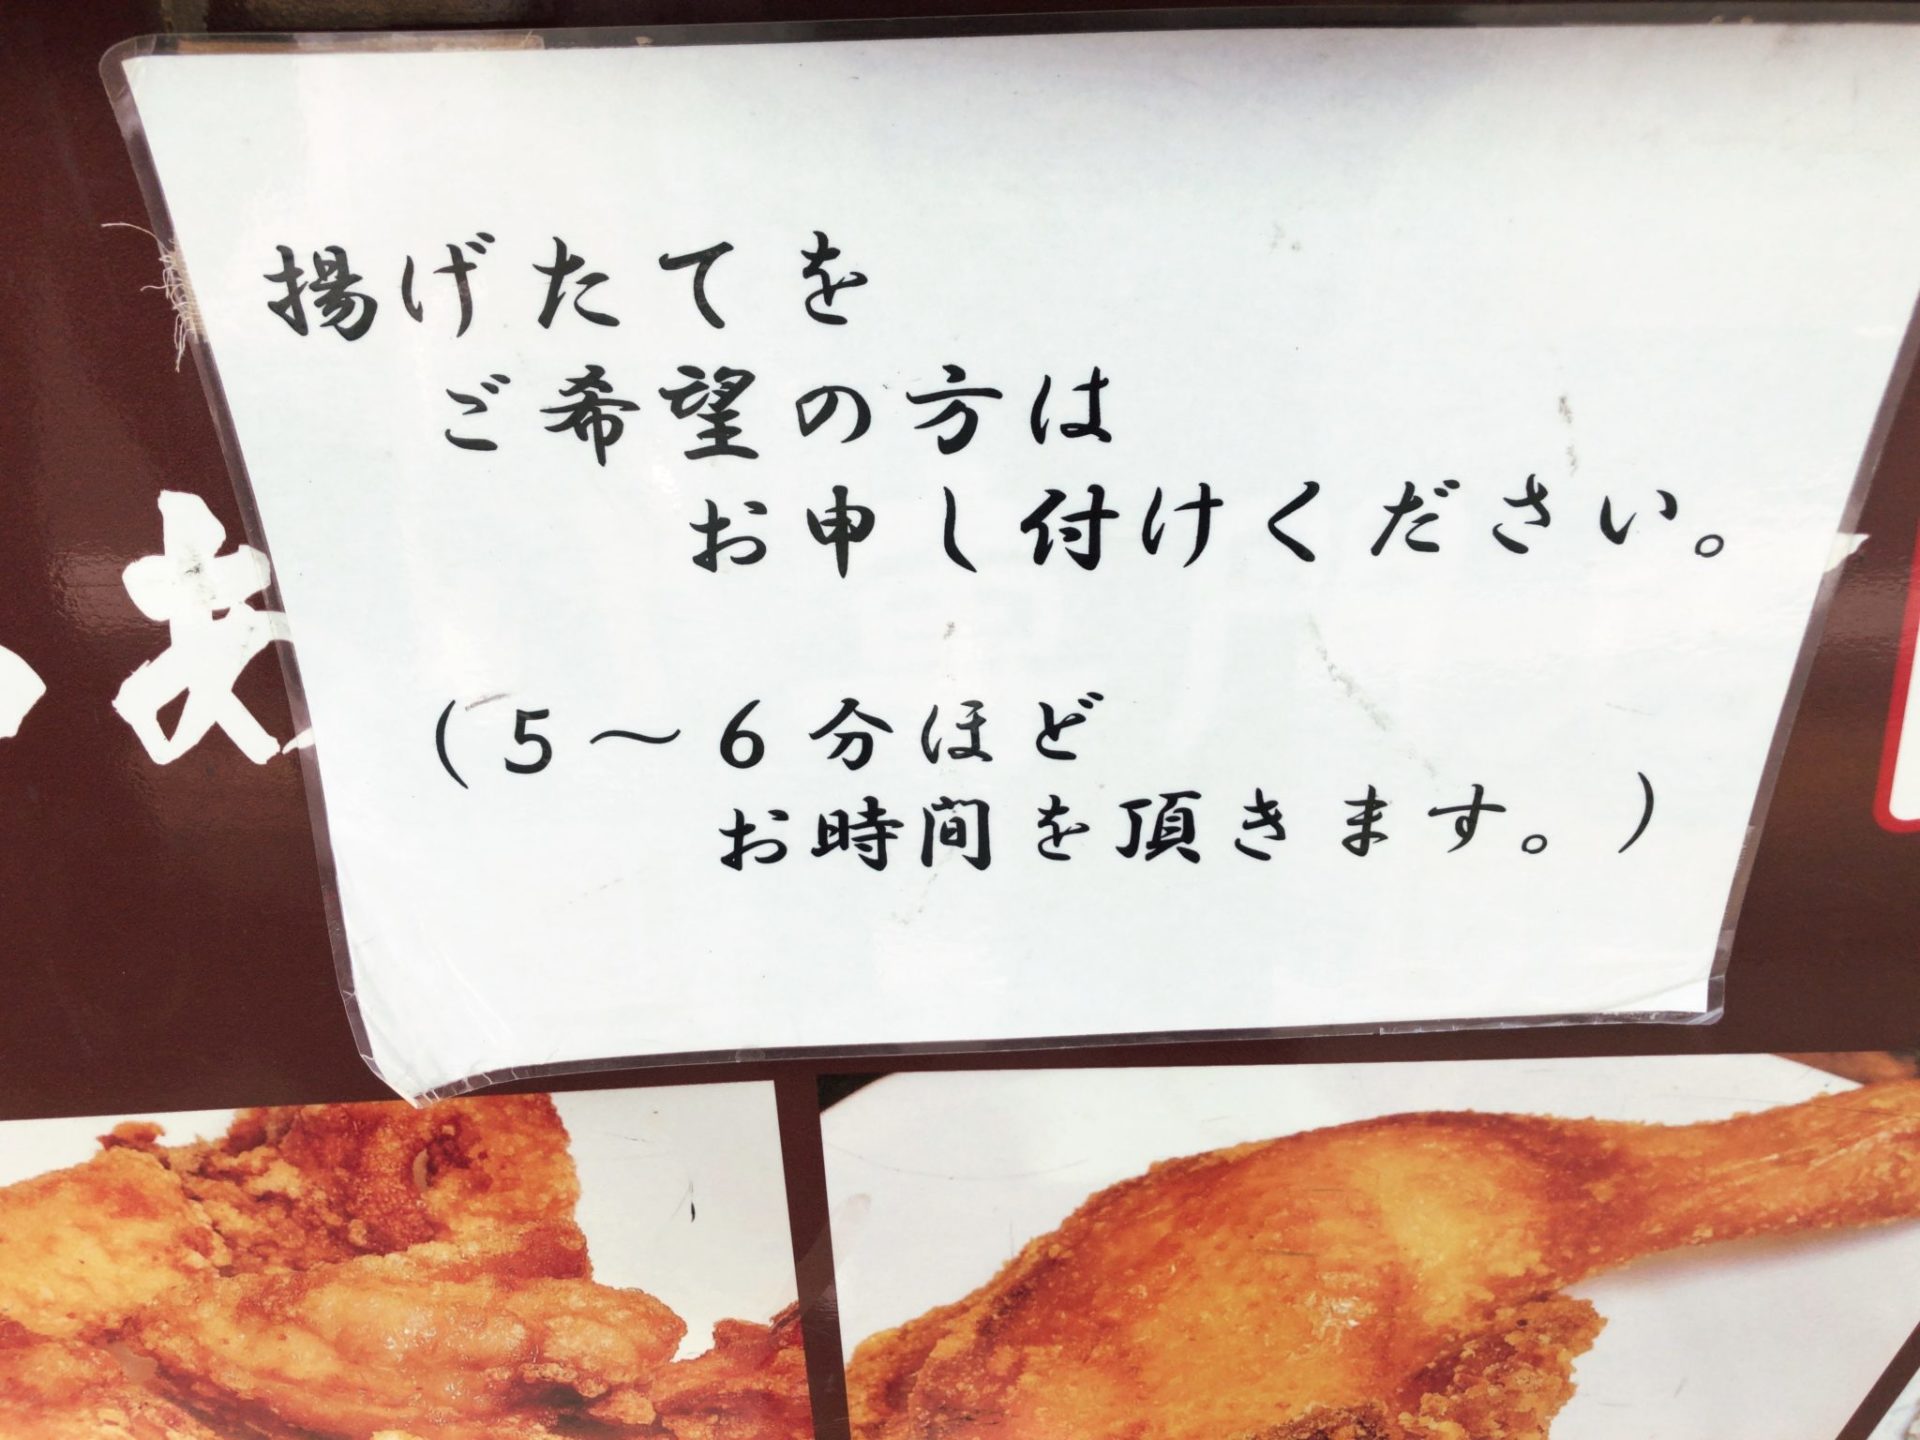 揚げたてを
ご希望の方は
お申し付けください。
（５～６分ほど
お時間を頂きます。）